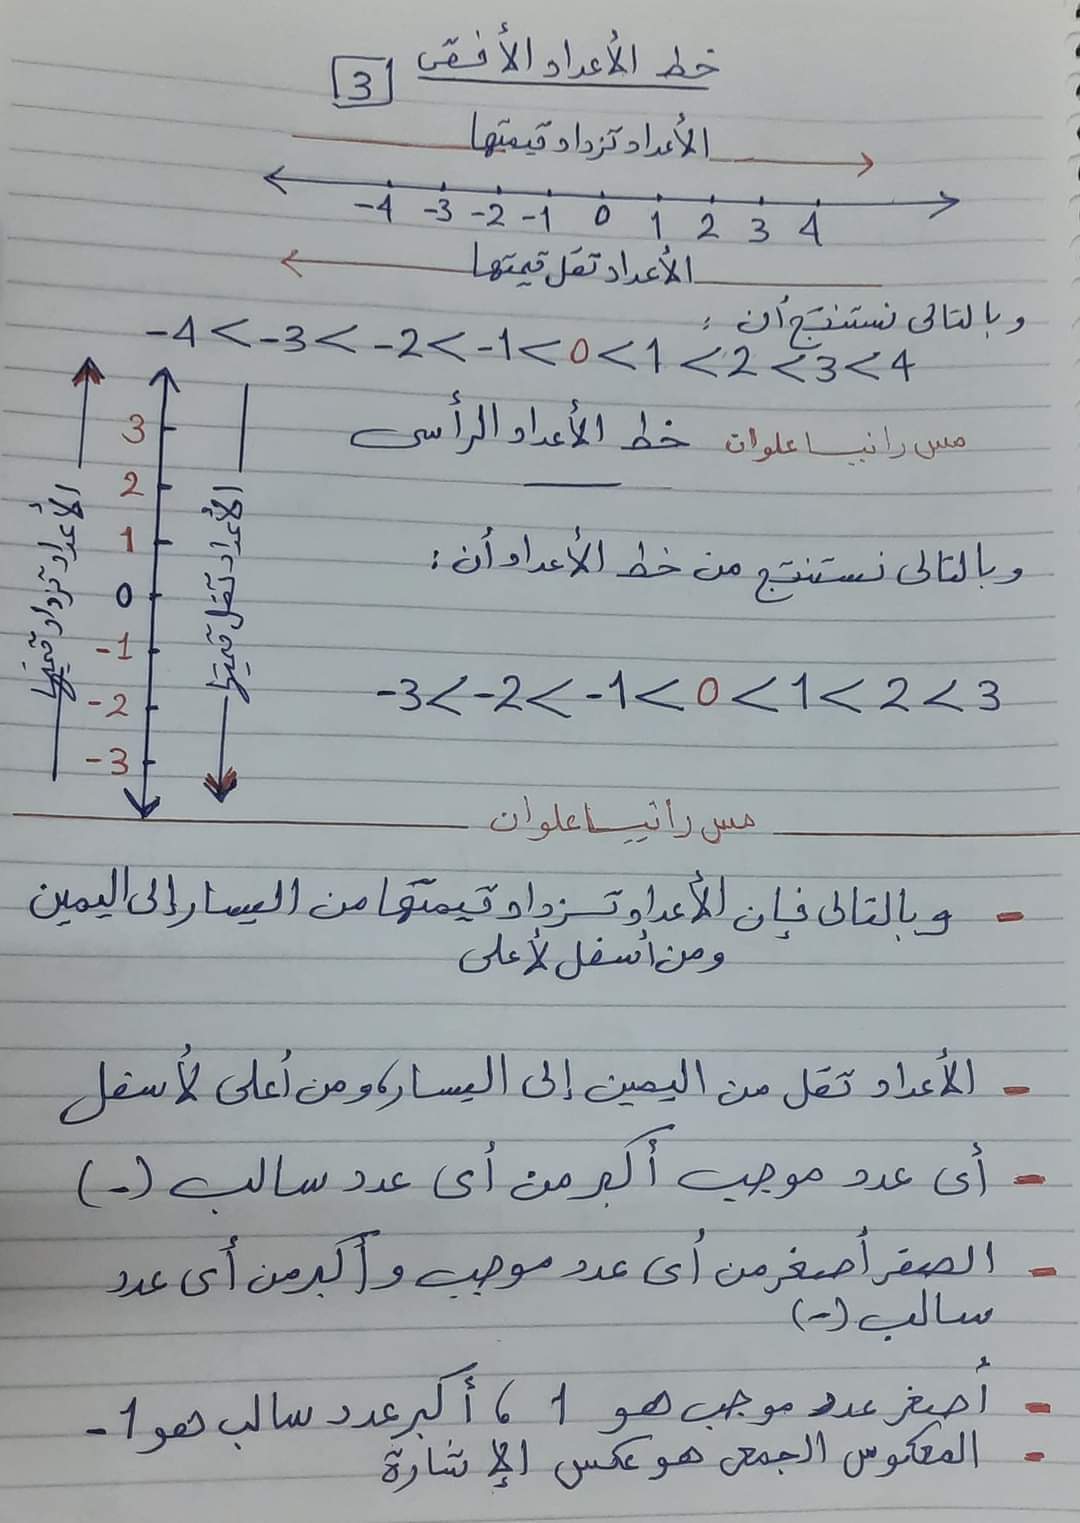 خط الأعداد الأفقى
3
الأعداد تزداد قيمتها
-4 -3 -2 -1 0 1 2 3 4
الأعداد تقل قيمتها
وبالتالى نستنتج أن :
-4 < -3 < -2 < -1 < 0 < 1 < 2 < 3 < 4
مس رانيا علوان
خط الأعداد الرأسى
3
2
1
0
-1
-2
-3
الأعداد تزداد قيمتها
الأعداد تقل قيمتها
وبالتالى نستنتج من خط الأعداد أن :
-3 < -2 < -1 < 0 < 1 < 2 < 3
مس رانيا علوان
- وبالتالى فإن الأعداد تزداد قيمتها من اليسار إلى اليمين
ومن أسفل لأعلى
- الأعداد تقل من اليمين إلى اليسار، ومن أعلى لأسفل
- أى عدد موجب أكبر من أى عدد سالب (-)
- الصفر أصغر من أى عدد موجب وأكبر من أى عدد
سالب (-)
- أصغر عدد موجب هو 1 ، أكبر عدد سالب هو 1-
- المعكوس الجمعى هو عكس الإشارة